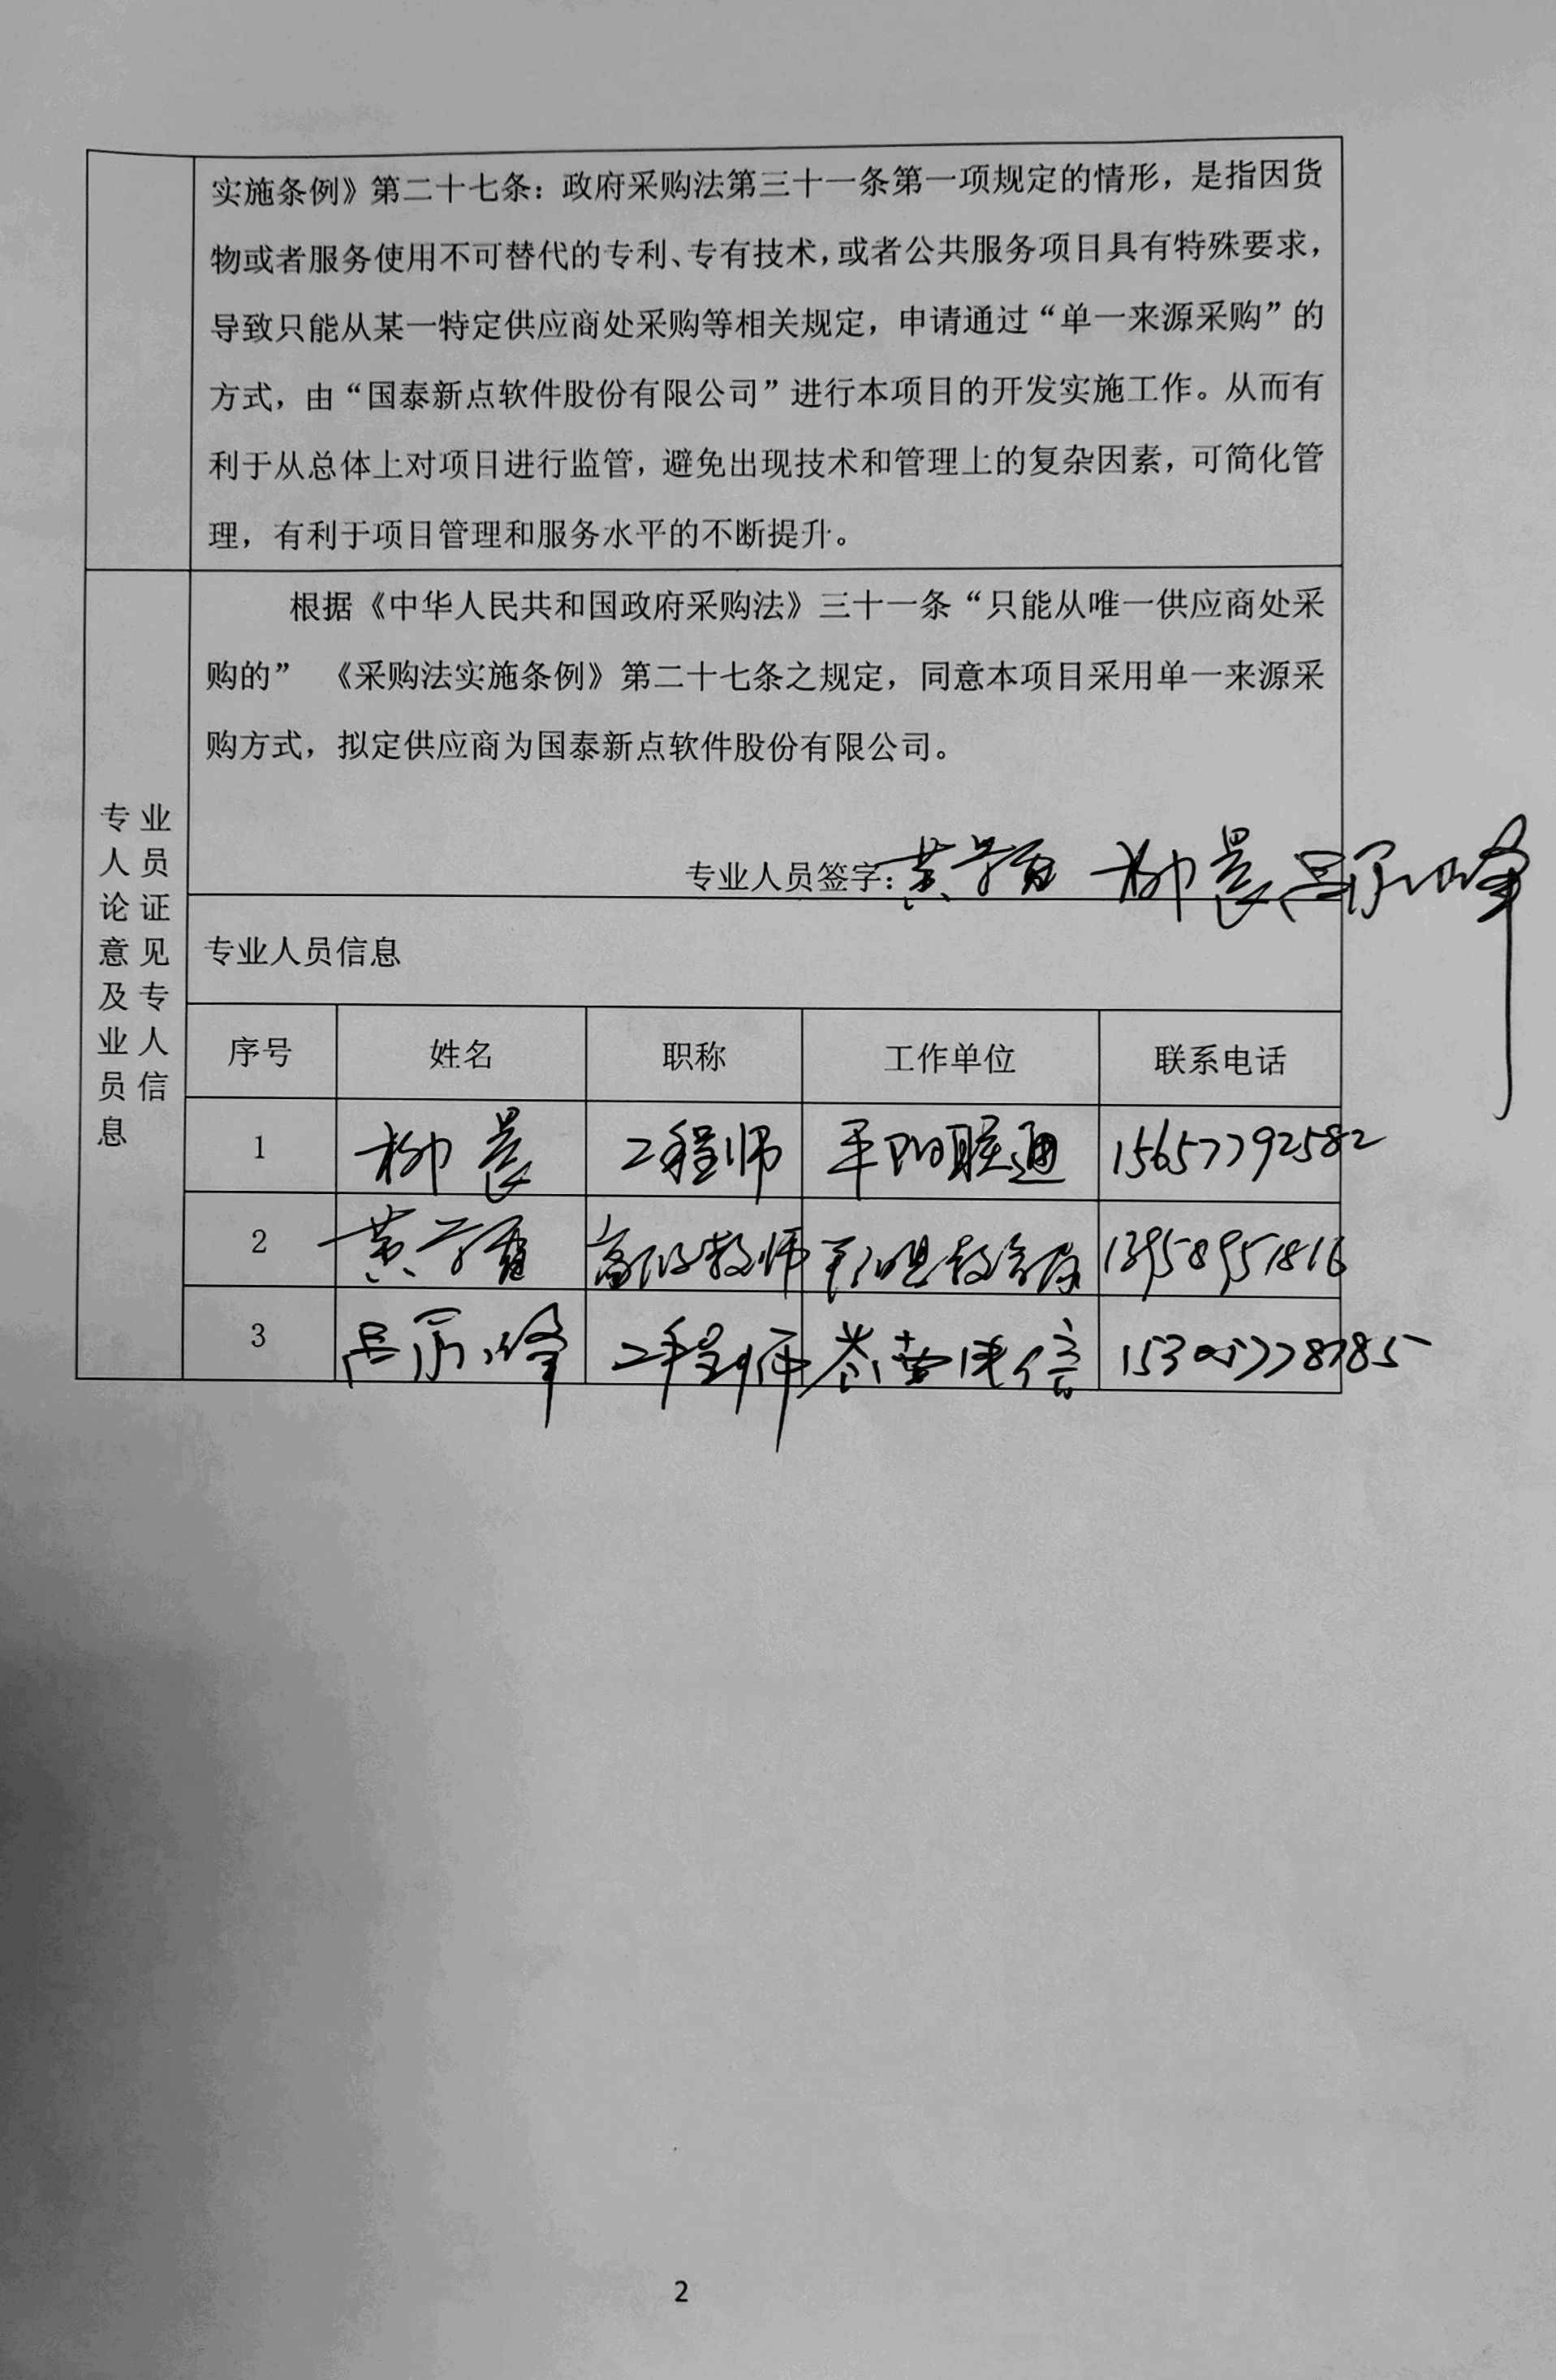 实施条例》第二十七条：政府采购法第三十一条第一项规定的情形，是指因货
物或者服务使用不可替代的专利、专有技术，或者公共服务项目具有特殊要求，
导致只能从某一特定供应商处采购等相关规定，申请通过“单一来源采购”的
方式，由“国泰新点软件股份有限公司”进行本项目的开发实施工作。从而有
利于从总体上对项目进行监管，避免出现技术和管理上的复杂因素，可简化管
理，有利于项目管理和服务水平的不断提升。
根据《中华人民共和国政府采购法》三十一条“只能从唯一供应商处采
购的” 《采购法实施条例》第二十七条之规定，同意本项目采用单一来源采
购方式，拟定供应商为国泰新点软件股份有限公司。
专业人员签字：黄 柳晨 吕 峰
专业
人员
论证
意见
及专
业人
员信
息
专业人员信息
序号 姓名 职称 工作单位 联系电话
1 柳晨 工程师 平阳联通 15657792582
2 黄 高级教师 平阳县教育局 13958951816
3 吕 峰 工程师 电信
2